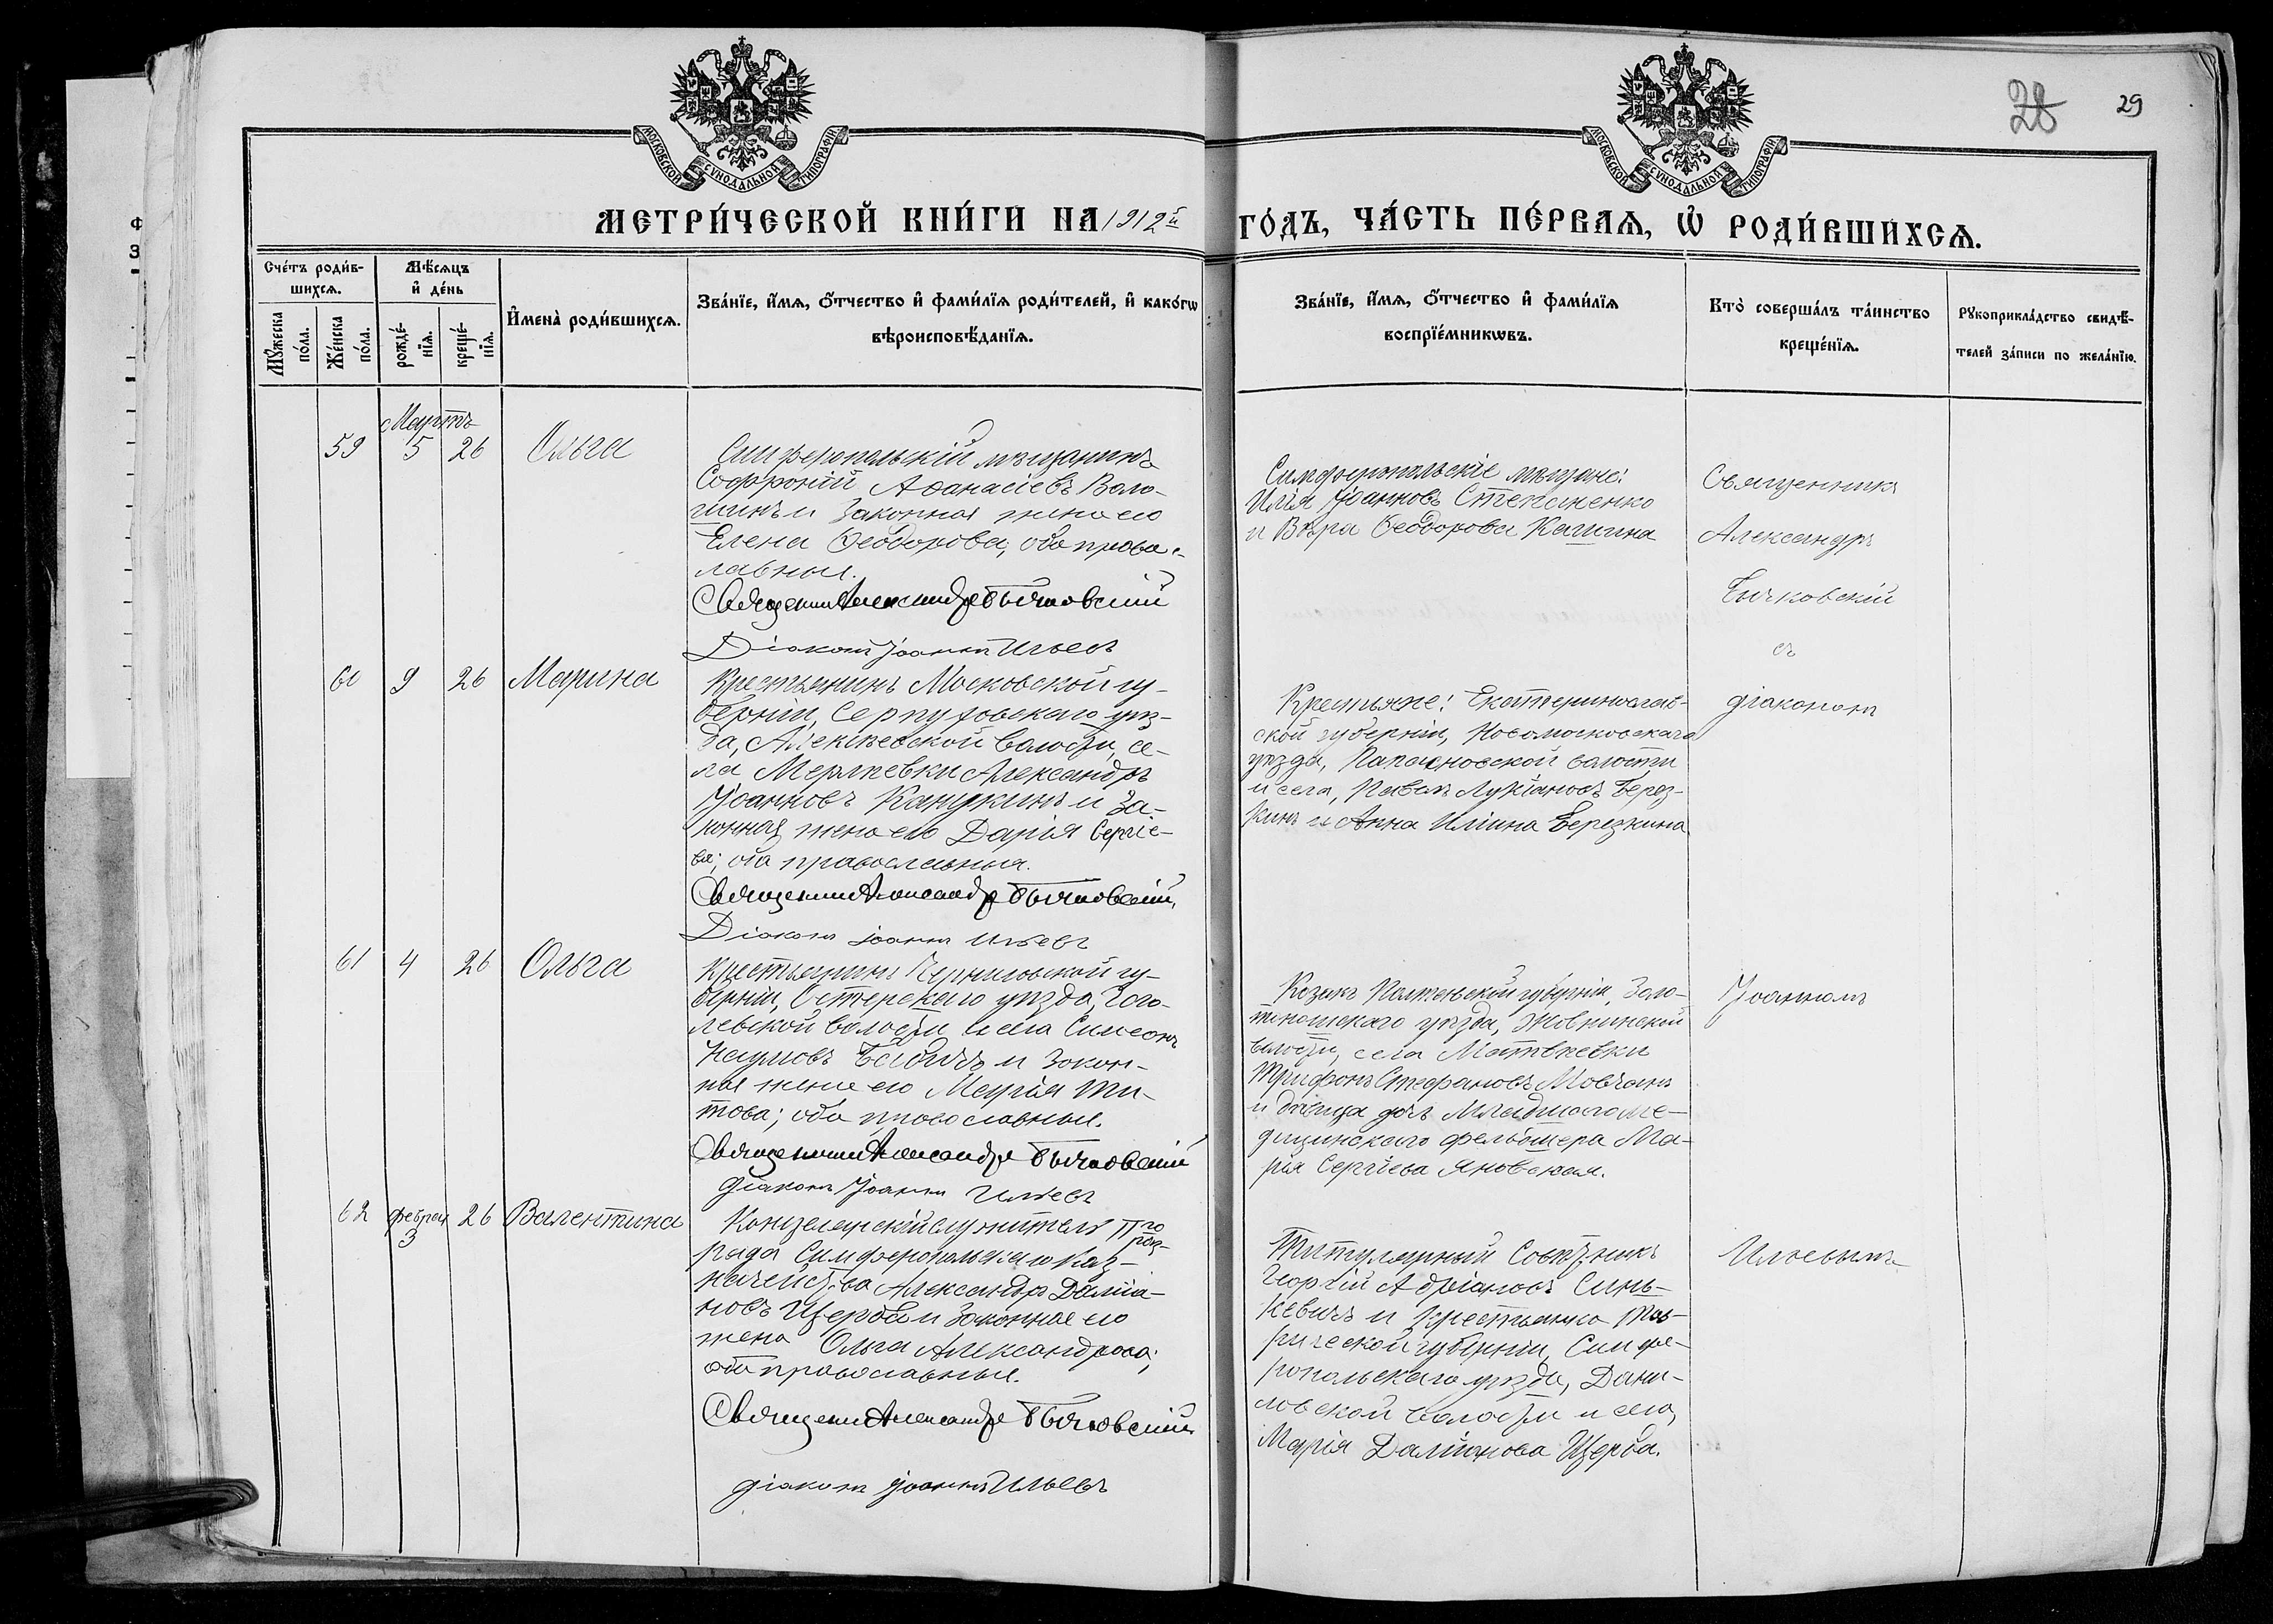 28
29
МОСКОВСКОЙ СѴНОДАЛЬНОЙ ТИПОГРАФІИ
МОСКОВСКОЙ СѴНОДАЛЬНОЙ ТИПОГРАФІИ
МЕТРИ́ЧЕСКОЙ КНИ́ГИ НА 1912й
ГО́ДЪ, ЧА́СТЬ ПЕ́РВАѦ, Ѡ҆ РОДИ́ВШИХСѦ.
Сче́тъ роди́в-
шихсѧ.
Мꙋ́жеска
по́ла.
Же́нска
по́ла.
Мѣ́сѧцъ
и҆ де́нь
рожде́-
нїѧ.
креще́-
нїѧ.
И҆мена̀ роди́вшихсѧ.
Зва́нїе, и҆́мѧ, ѻ҆́тчество и҆ фами́лїѧ роди́телей, и҆ како́гѡ
вѣроисповѣ́данїѧ.
Зва́нїе, и҆́мѧ, ѻ҆́тчество и҆ фами́лїѧ
воспрїе́мникѡвъ.
Кто̀ соверша́лъ та́инство
креще́нїѧ.
Рꙋкоприкла́дство свидѣ́-
телей за́писи по жела́нїю.
Мартъ
59 5 26 Ольга
Симферопольскій мѣщанинъ
Софроній Аѳанасіевъ Воло-
шинъ и законная жена его
Елена Ѳеодорова, оба правос-
лавные.
Священникъ Александръ Бычковскій
Діаконъ Іоаннъ Ильевъ
Симферопольскіе мѣщане:
Илія Іоанновъ Степаненко
и Вѣра Ѳеодорова Кашина
Священникъ
Александръ
Бычковскій
съ
діакономъ
Іоанномъ
Ильевымъ
60 9 26 Марина
Крестьянинъ Московской гу-
берніи, Серпуховскаго уѣз-
да, Алексѣевской волости, се-
ла Мерлеевки Александръ
Іоанновъ Канушкинъ и за-
конная жена его Дарія Сергіе-
ва; оба православные.
Священникъ Александръ Бычковскій
Діаконъ Іоаннъ Ильевъ
Крестьяне: Екатеринослав-
ской губерніи, Новомосковскаго
уѣзда, Папасновской волости
и села, Павелъ Лукіановъ Берез-
кинъ и Анна Иліина Березкина
61 4 26 Ольга
Крестьянинъ Черниговской гу-
берніи, Остерскаго уѣзда, Гого-
левской волости и села Симеонъ
Наумовъ Бабичъ и закон-
ная жена его Марія Ти-
това; оба православные.
Священникъ Александръ Бычковскій
Діаконъ Іоаннъ Ильевъ
Козакъ Полтавской губерніи, Золо-
тоношскаго уѣзда, Жовнинской
волости, села Матвѣевки
Трифонъ Стефановъ Мовчанъ
и дѣвица дочь младшаго ме-
дицинскаго фельдшера Ма-
рія Сергіева Яновская.
62 Февраля 3 26 Валентина
Канцелярскій служитель IIго раз-
ряда Симферопольскаго Каз-
начейства Александръ Даміа-
новъ Щерба и законная его
жена Ольга Александрова;
оба православные.
Священникъ Александръ Бычковскій
діаконъ Іоаннъ Ильевъ
Титулярный Совѣтникъ
Георгій Адріановъ Синь-
кевичъ и крестьянка Тав-
рической губерніи, Симфе-
ропольскаго уѣзда, Дани-
ловской волости и села,
Марія Даміанова Щерба.